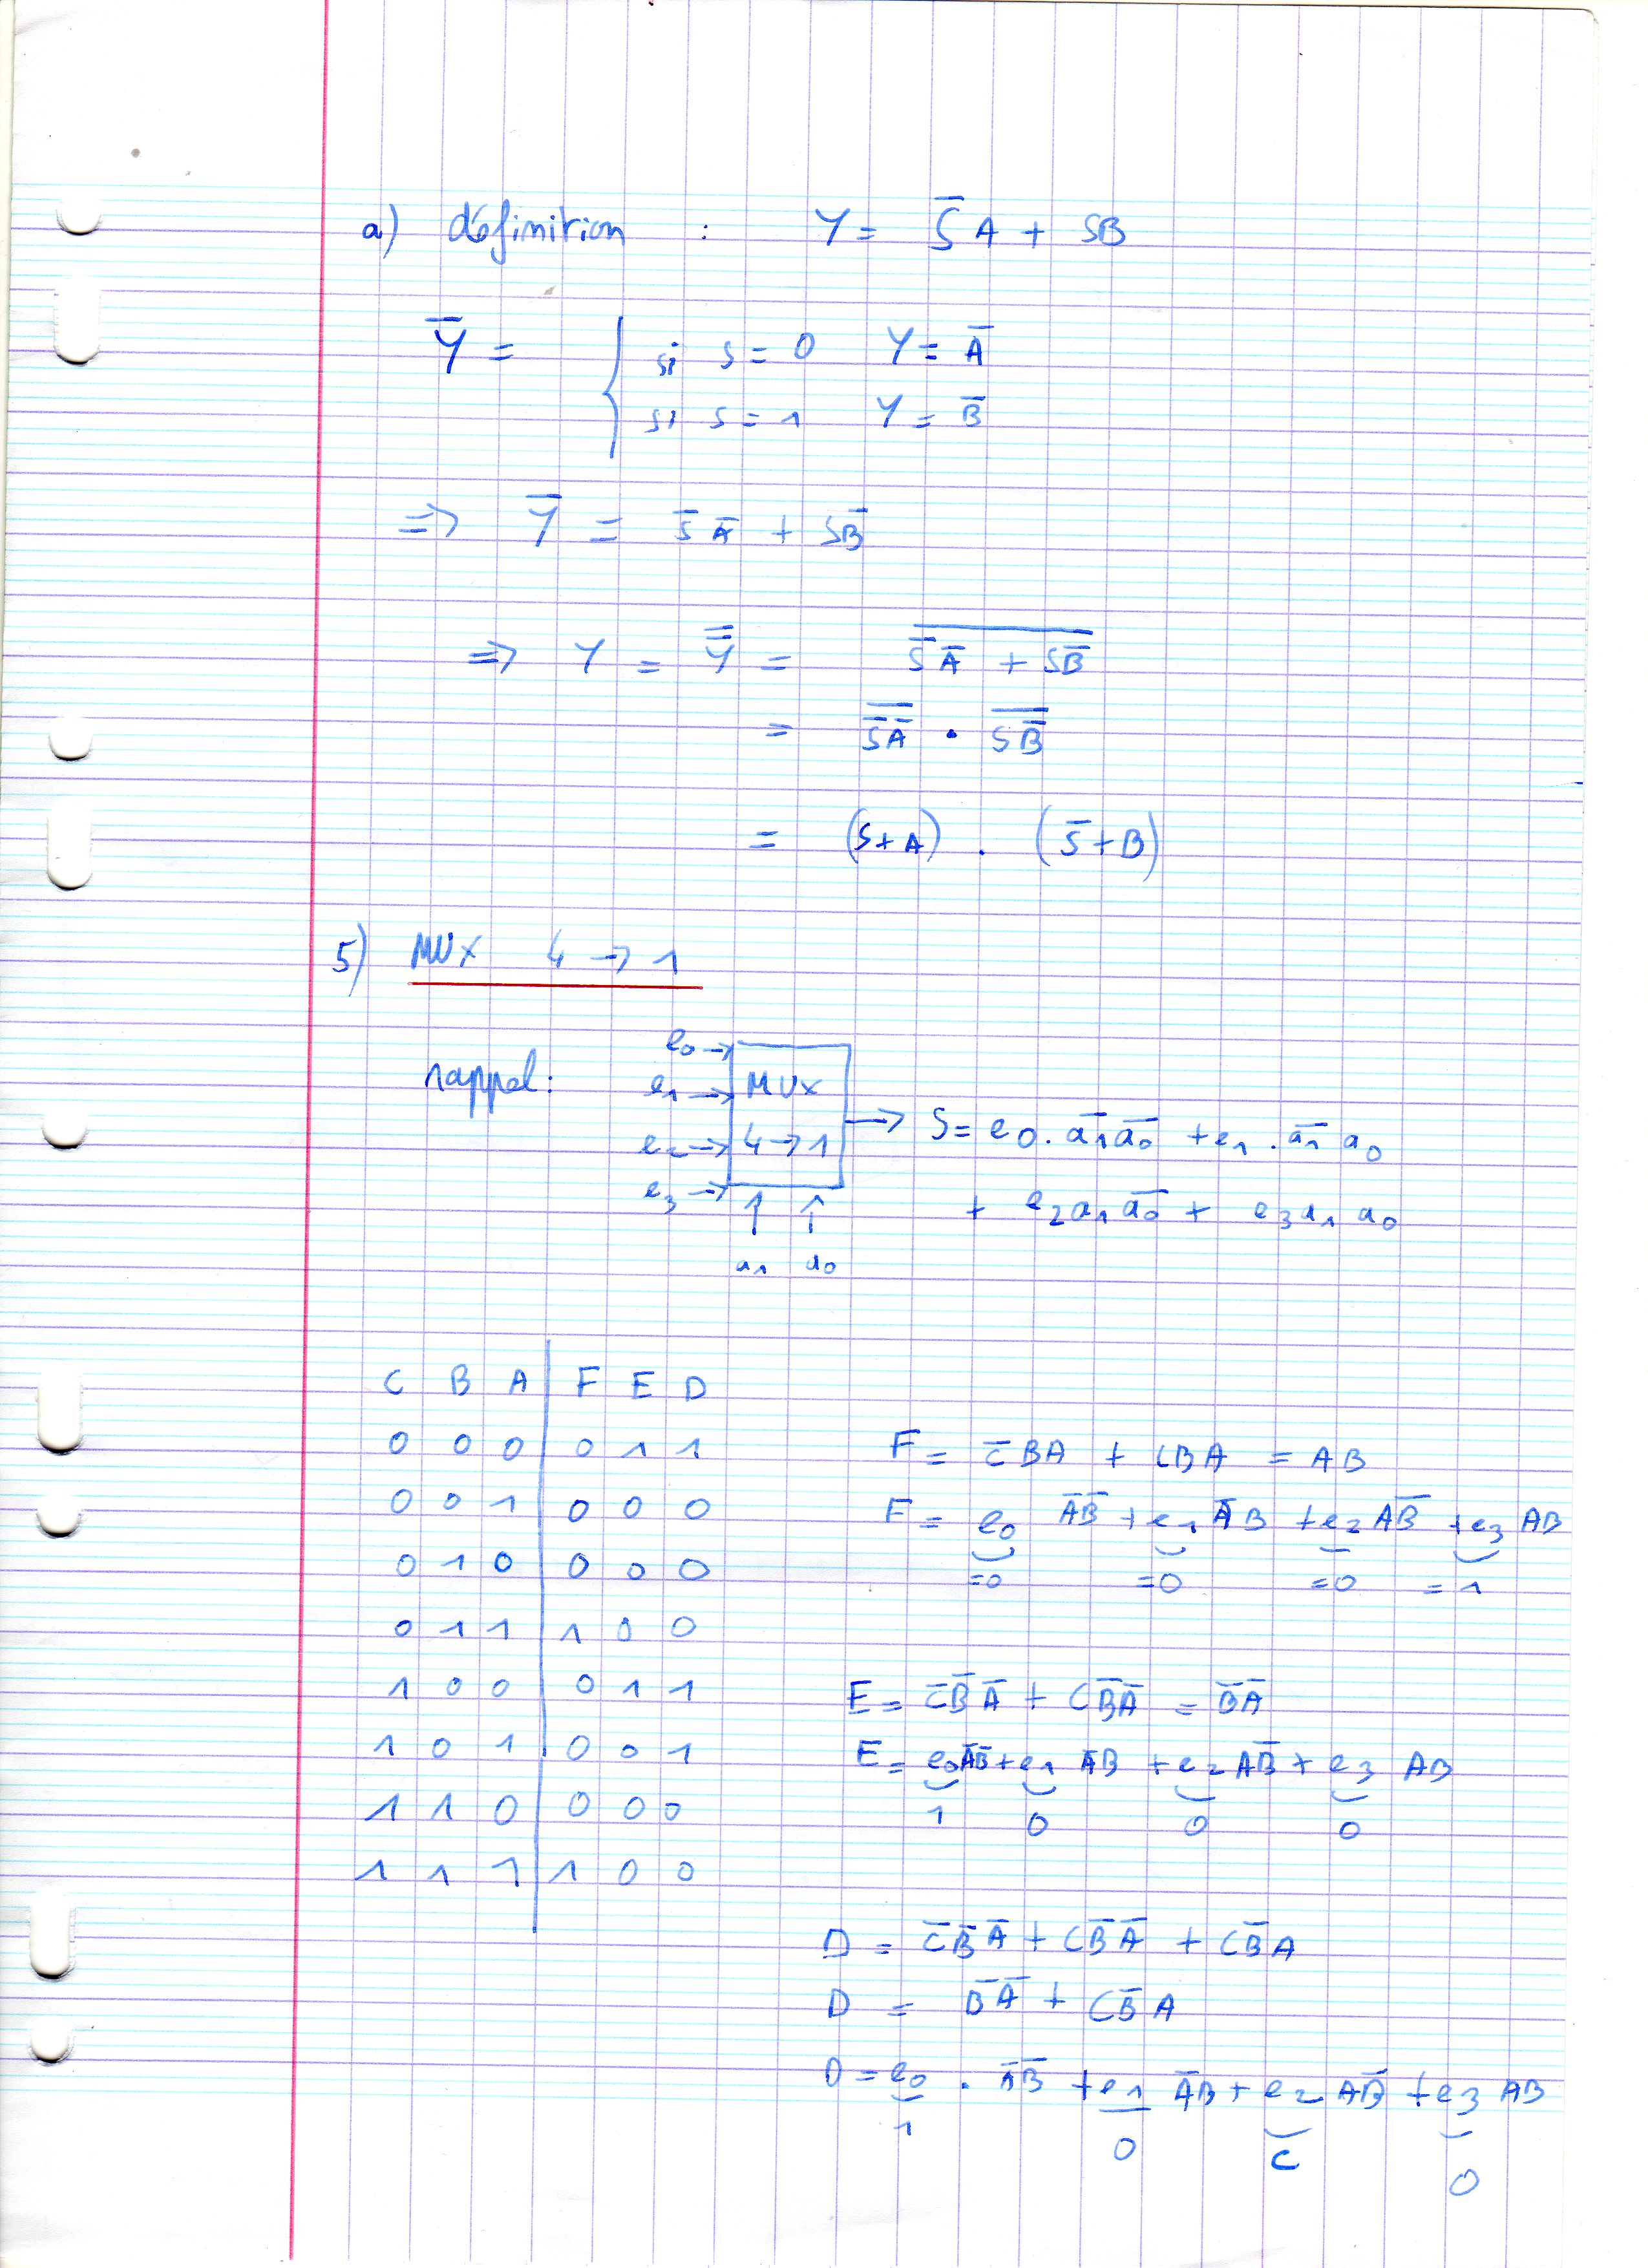 a) définition : Y = S̅ A + SB
Y̅ = { si S = 0 Y = A̅
si S = 1 Y = B̅
=> Y̅ = S̅ A̅ + SB̅
=> Y = Y̿ = \overline{S̅ A̅ + SB̅}
= \overline{S̅A̅} . \overline{SB̅}
= (S+A) . (S̅+B)
5) MUX 4 → 1
rappel :
e0 →
e1 → MUX
e2 → 4 → 1 → S = e0. a̅1 a̅0 + e1 . a̅1 a0
e3 → + e2 a1 a̅0 + e3 a1 a0
↑ ↑
a1 a0
C B A | F E D
0 0 0 | 0 1 1
0 0 1 | 0 0 0
0 1 0 | 0 0 0
0 1 1 | 1 0 0
1 0 0 | 0 1 1
1 0 1 | 0 0 1
1 1 0 | 0 0 0
1 1 1 | 1 0 0
F = C̅BA + CBA = AB
F = e0 A̅B̅ + e1 A̅B + e2 AB̅ + e3 AB
=0 =0 =0 =1
E = C̅B̅A̅ + CB̅A̅ = B̅A̅
E = e0 A̅B̅ + e1 A̅B + e2 AB̅ + e3 AB
1 0 0 0
D = C̅B̅A̅ + CB̅A̅ + CB̅A
D = B̅A̅ + CB̅A
D = e0 . A̅B̅ + e1 A̅B + e2 AB̅ + e3 AB
1 0 C 0